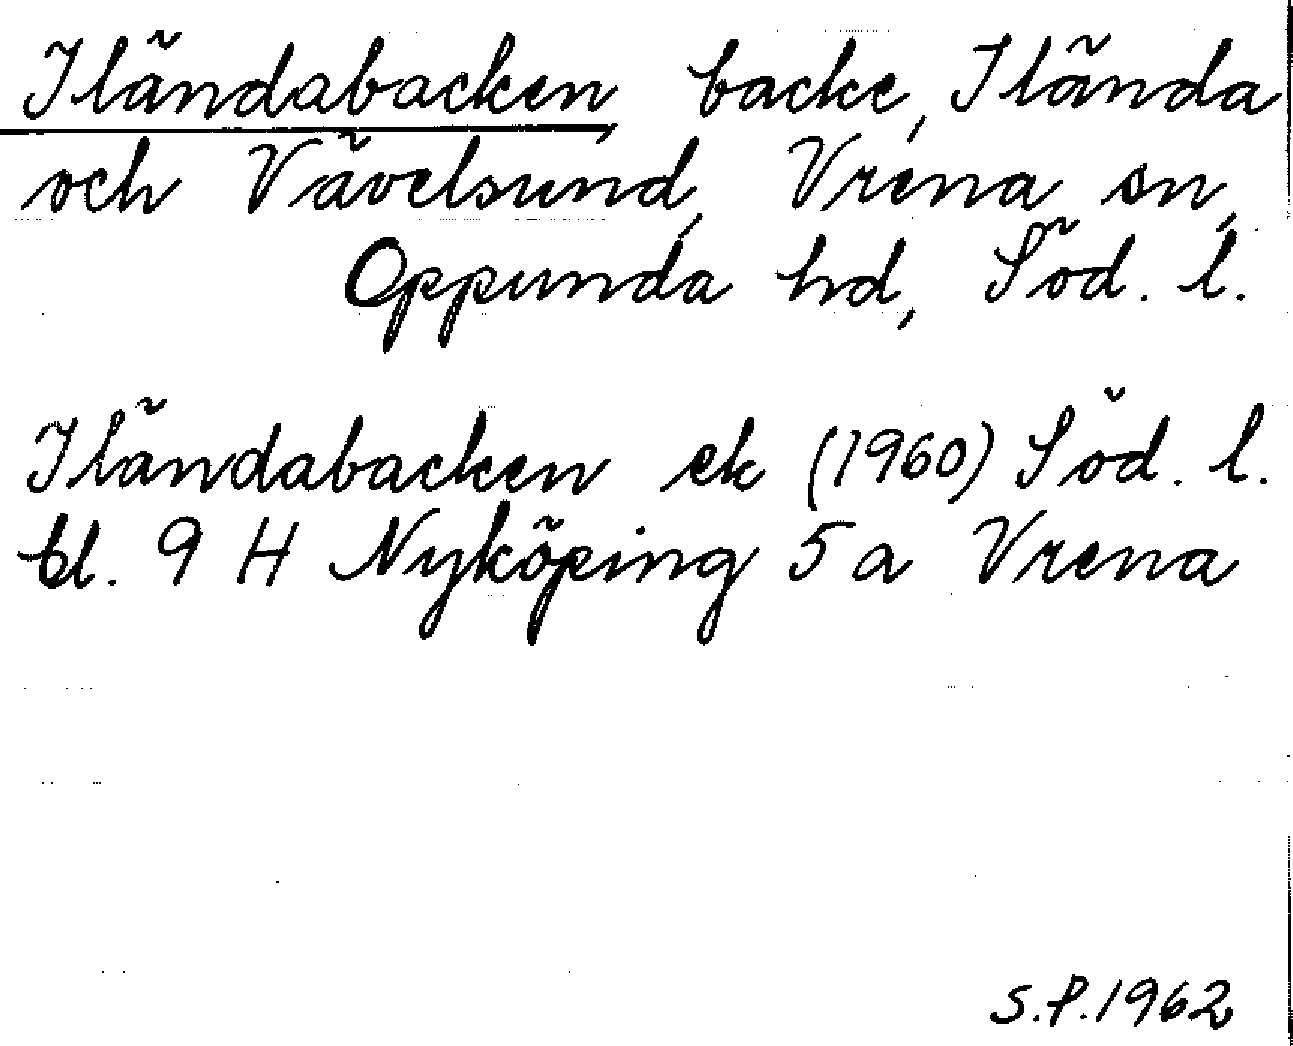 Iländabacken, backe, Ilända
och Vävelsund, Vrena sn,
Oppunda hd, Söd. l.
Iländabacken ek (1960) Söd. l.
bl. 9 H Nyköping 5 a Vrena
S.P. 1962